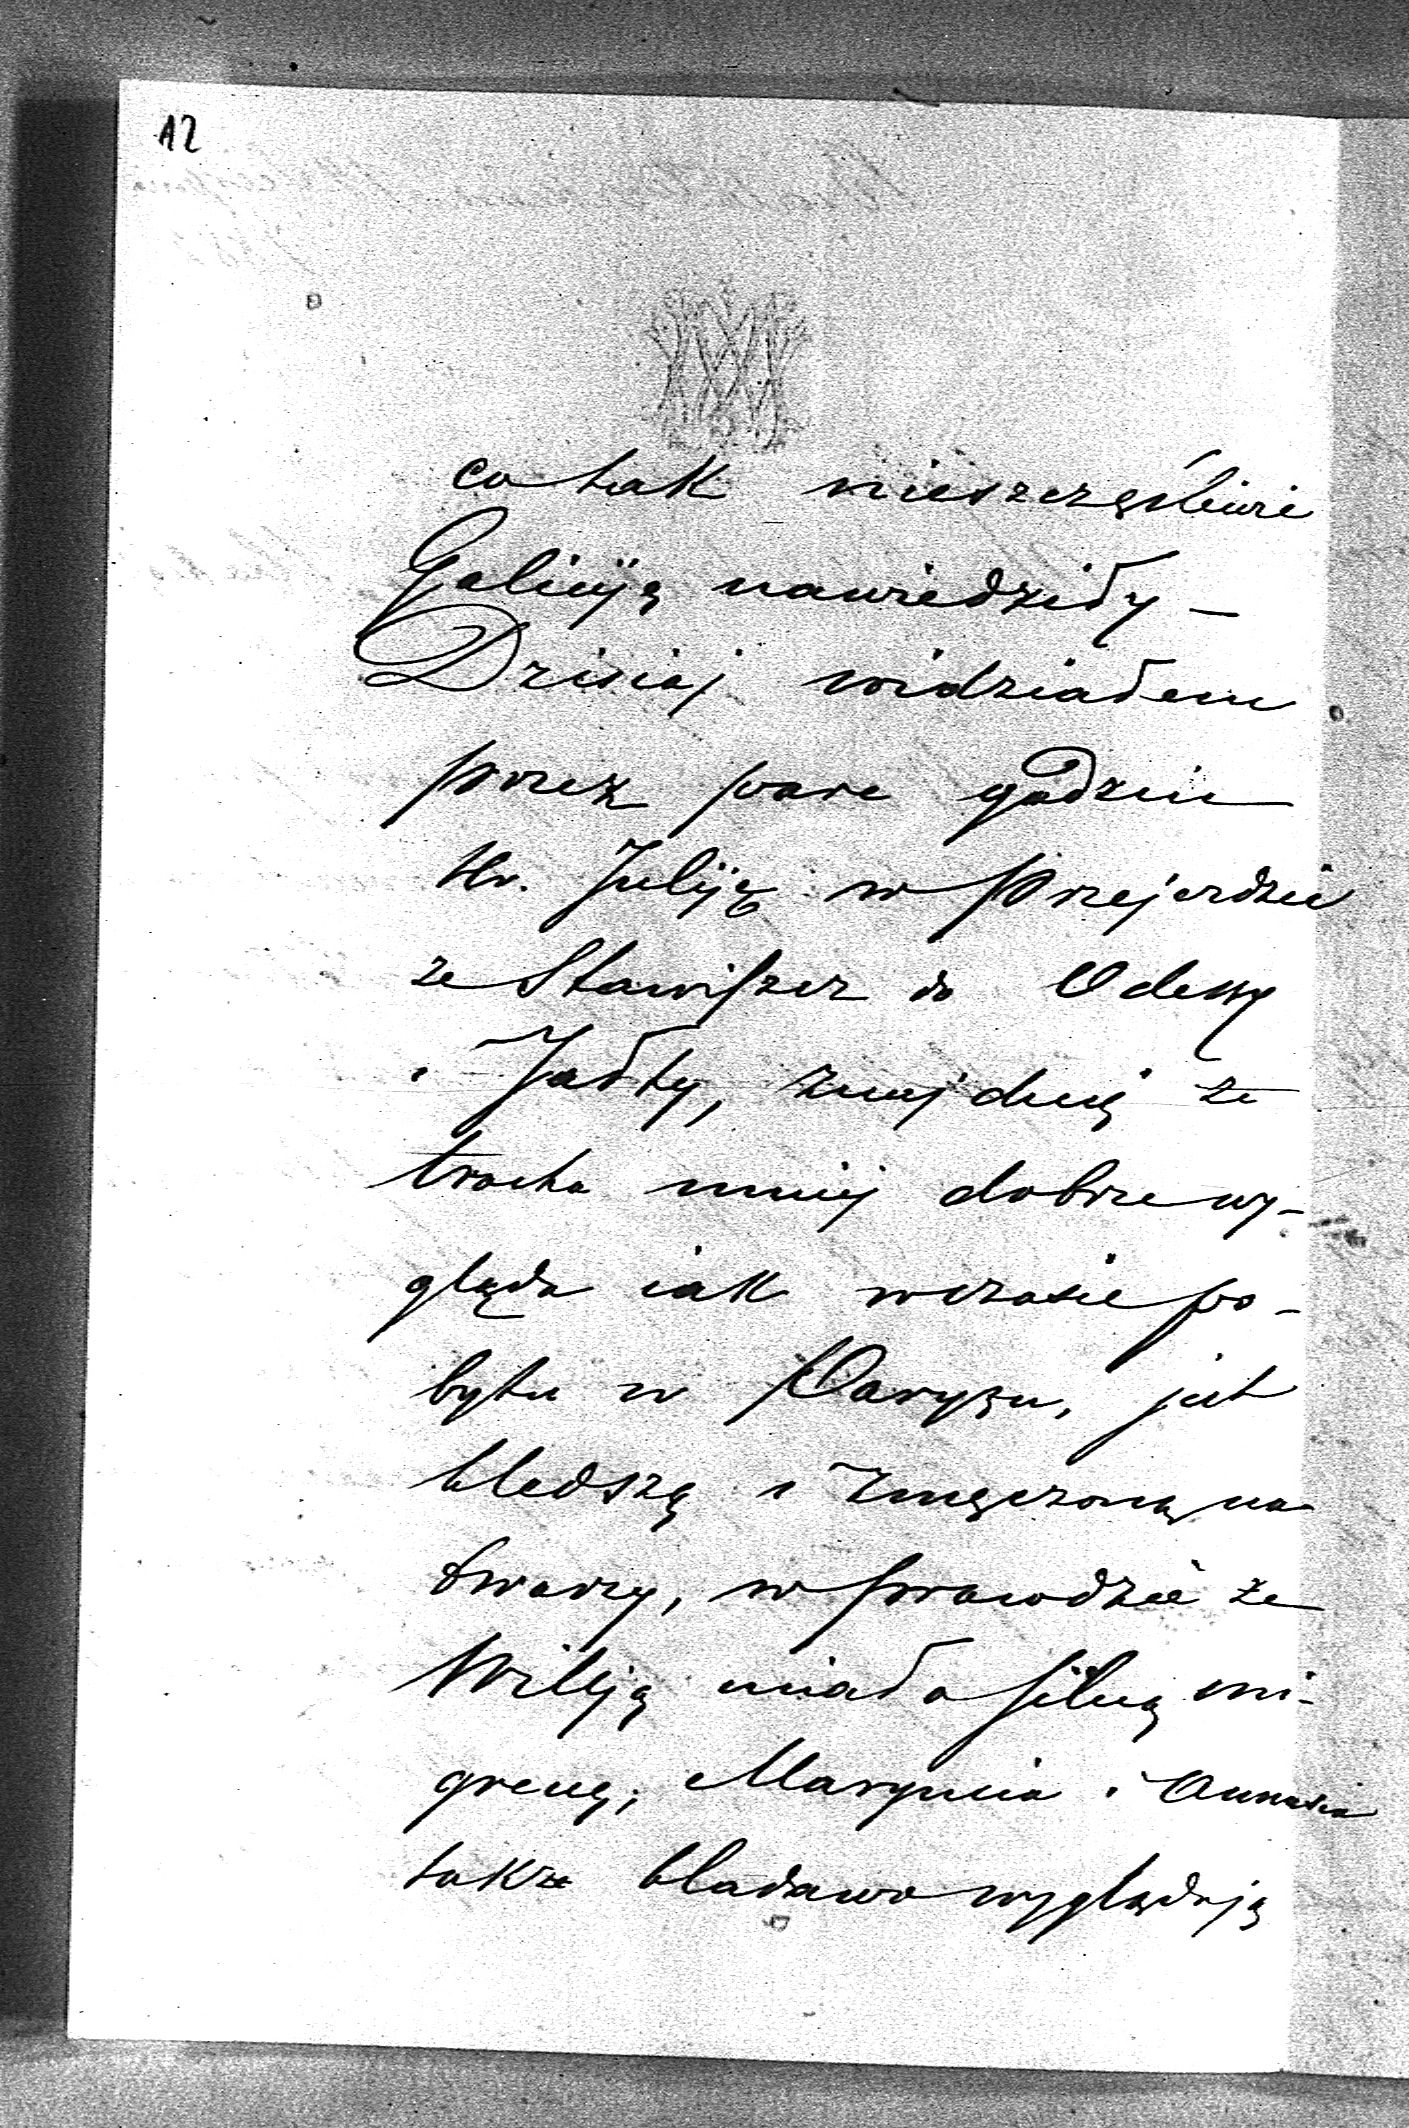 12
co tak nieszczęśliwie
Galicyją nawiedziły —
Dzisiaj widziałem
przez pare godzin
Hr. Juliją w przejezdzie
ze Stawiszcz do Odessy
i Jałty, znajduię że
trocha mniej dobrze wy-
gląda iak wczasie po-
bytu w Paryżu, jest
bledszą i zmęczoną na
twarzy, wprawdzie że
Wiliją miała silną mi-
grenę; Marynia i Anusia
takze bladawo wyglądają